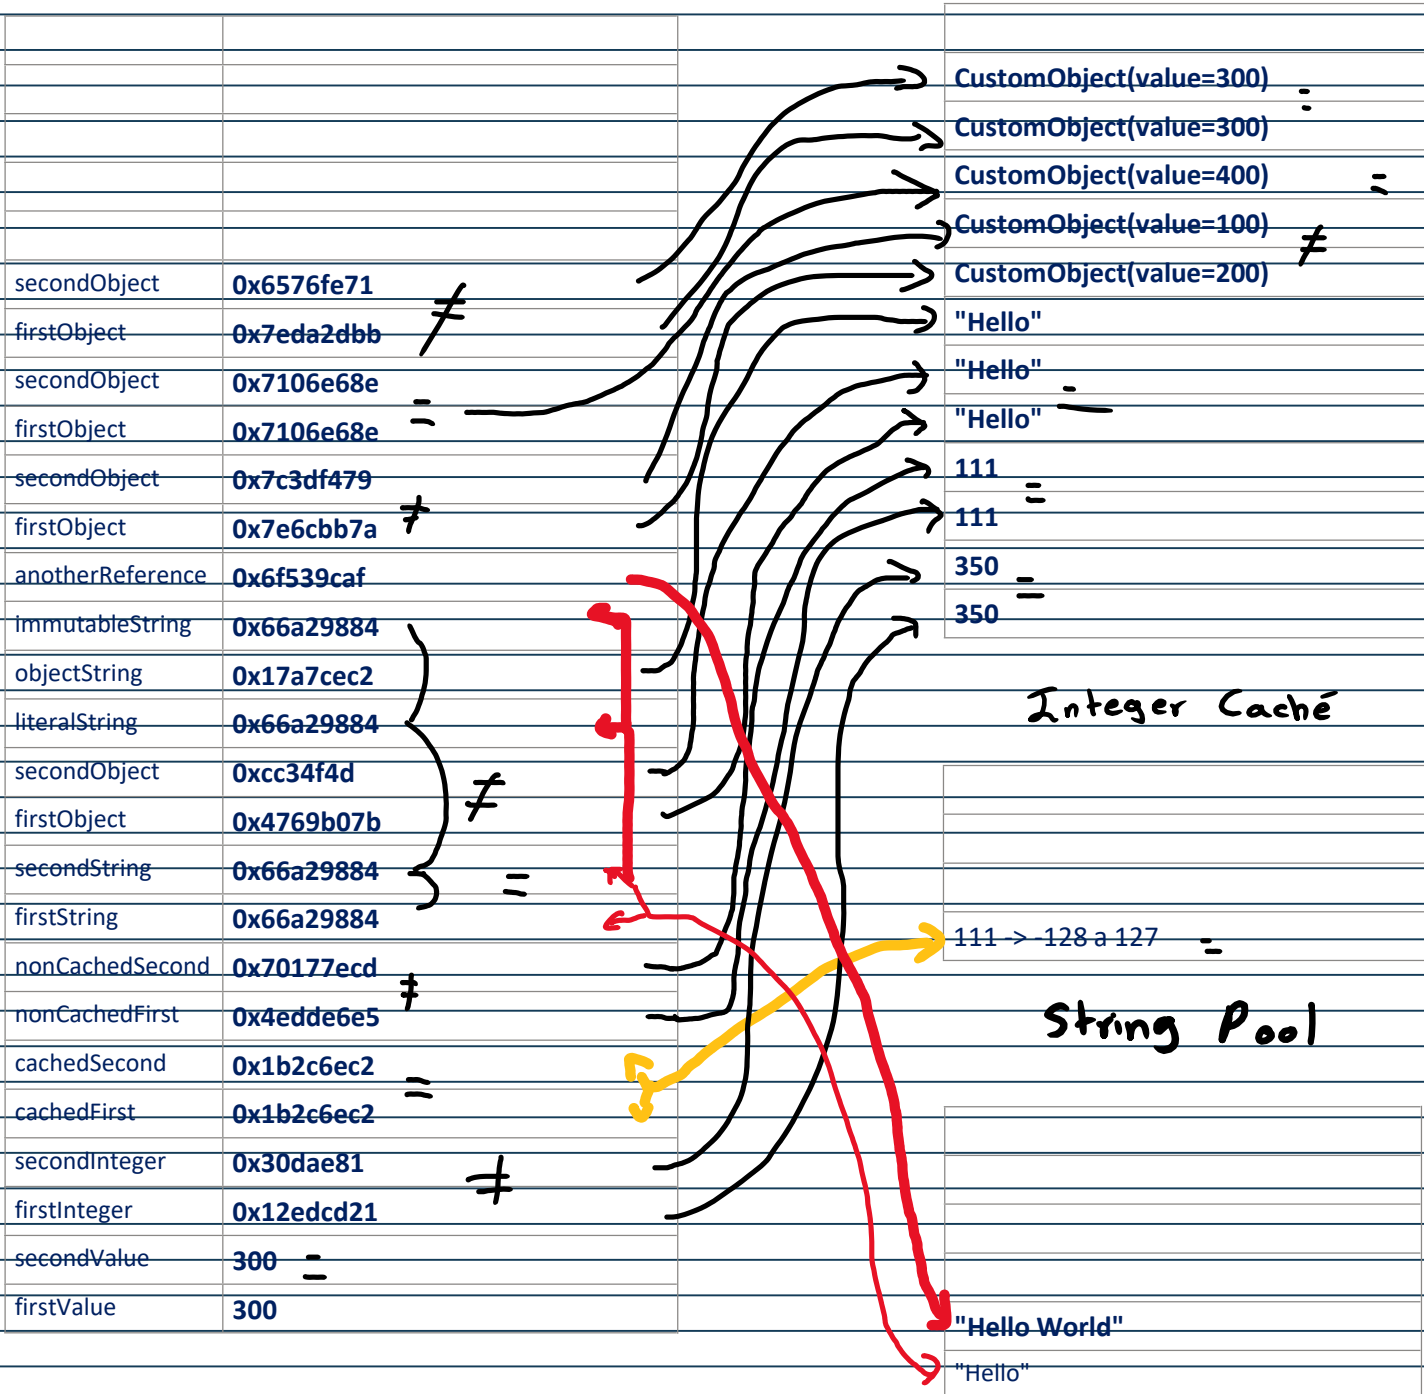 secondObject 0x6576fe71 ≠
firstObject 0x7eda2dbb
secondObject 0x7106e68e =
firstObject 0x7106e68e
secondObject 0x7c3df479 ≠
firstObject 0x7e6cbb7a
anotherReference 0x6f539caf
immutableString 0x66a29884
objectString 0x17a7cec2
literalString 0x66a29884
secondObject 0xcc34f4d ≠
firstObject 0x4769b07b
secondString 0x66a29884 =
firstString 0x66a29884
nonCachedSecond 0x70177ecd ≠
nonCachedFirst 0x4edde6e5
cachedSecond 0x1b2c6ec2 =
cachedFirst 0x1b2c6ec2
secondInteger 0x30dae81 ≠
firstInteger 0x12edcd21
secondValue 300 =
firstValue 300
CustomObject(value=300) =
CustomObject(value=300)
CustomObject(value=400) =
CustomObject(value=100) ≠
CustomObject(value=200)
"Hello"
"Hello" =
"Hello"
111 =
111
350 =
350
Integer Caché
111 -> -128 a 127 =
String Pool
"Hello World"
"Hello"